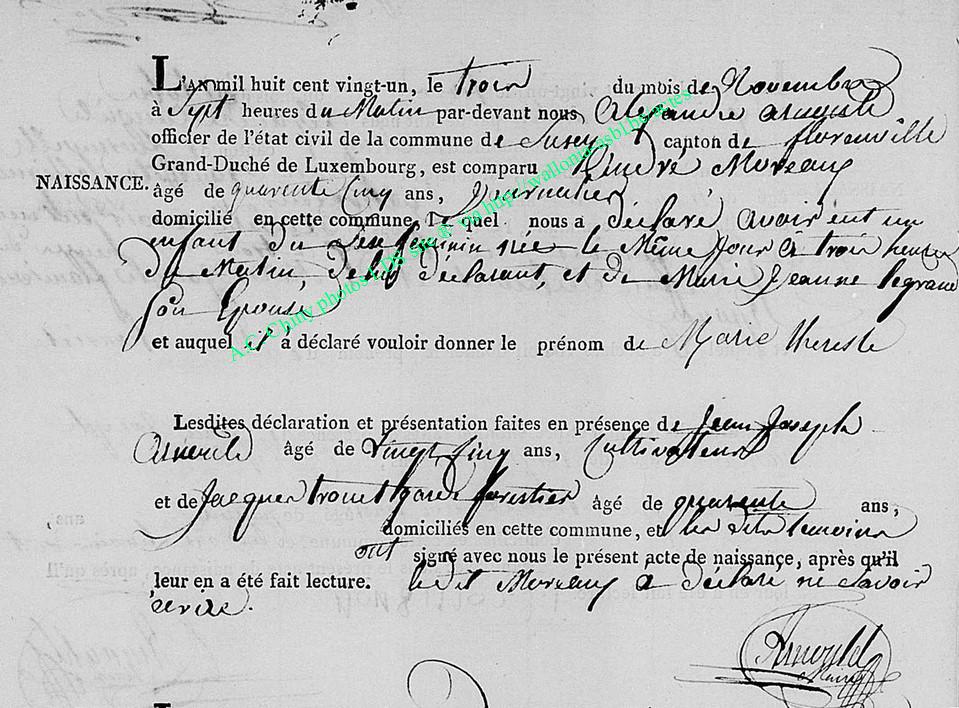 L'AN mil huit cent vingt-un, le trois du mois de Novembre
à Sept heures du Matin par-devant nous Alexandre
officier de l'état civil de la commune de canton de florenville
Grand-Duché de Luxembourg, est comparu André Moreaux
NAISSANCE. âgé de quarente Cinq ans,
domicilié en cette commune, Le quel nous a déclaré avoir eut un
enfant du feminin née le Même Jour à trois heures
du Matin, de luy déclarant, et de Marie Jeanne legrand
son Epouse
et auquel il a déclaré vouloir donner le prénom de Marie therese
Lesdites déclaration et présentation faites en présence de Jean Joseph
âgé de Vingt Cinq ans, Cultivateur
et de Jacques garde forestier âgé de quarente ans,
domiciliés en cette commune, et les dits temoins
ont signé avec nous le présent acte de naissance, après qu'il
leur en a été fait lecture. ledit Moreaux a déclaré ne savoir
écrire.